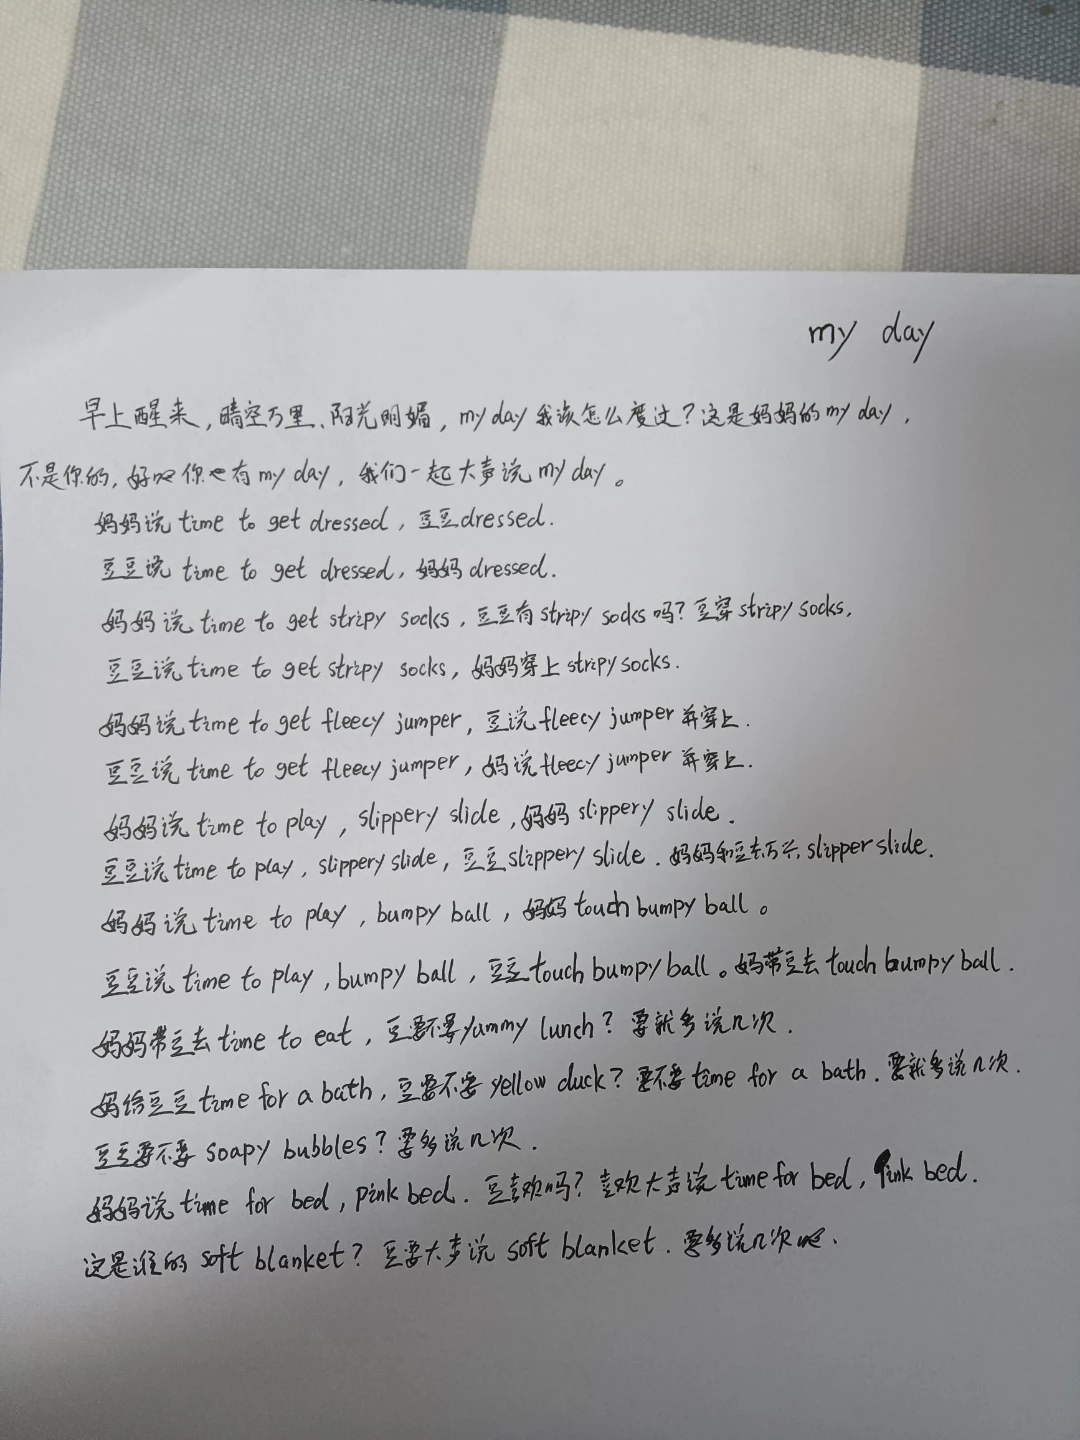 my day
早上醒来,晴空万里、阳光明媚,my day 我该怎么度过?这是妈妈的my day,
不是你的,好吧你也有my day,我们一起大声说my day。
妈妈说time to get dressed,豆豆dressed.
豆豆说time to get dressed,妈妈dressed.
妈妈说time to get stripy socks,豆豆有stripy socks吗?豆穿stripy socks,
豆豆说time to get stripy socks,妈妈穿上stripy socks.
妈妈说time to get fleecy jumper,豆说fleecy jumper并穿上.
豆豆说time to get fleecy jumper,妈说fleecy jumper并穿上.
妈妈说time to play,slippery slide,妈妈slippery slide.
豆豆说time to play,slippery slide,豆豆slippery slide.妈妈和豆去万兴slipper slide.
妈妈说time to play,bumpy ball,妈妈touch bumpy ball。
豆豆说time to play,bumpy ball,豆豆touch bumpy ball。妈带豆去touch bumpy ball.
妈妈带豆去time to eat,豆要不要yummy lunch?要就多说几次.
妈给豆豆time for a bath,豆要不要yellow duck?要不要time for a bath.要就多说几次.
豆豆要不要soapy bubbles?要多说几次.
妈妈说time for bed,pink bed.豆喜欢吗?喜欢大声说time for bed,pink bed.
这是谁的soft blanket?豆要大声说soft blanket.要多说几次吧.